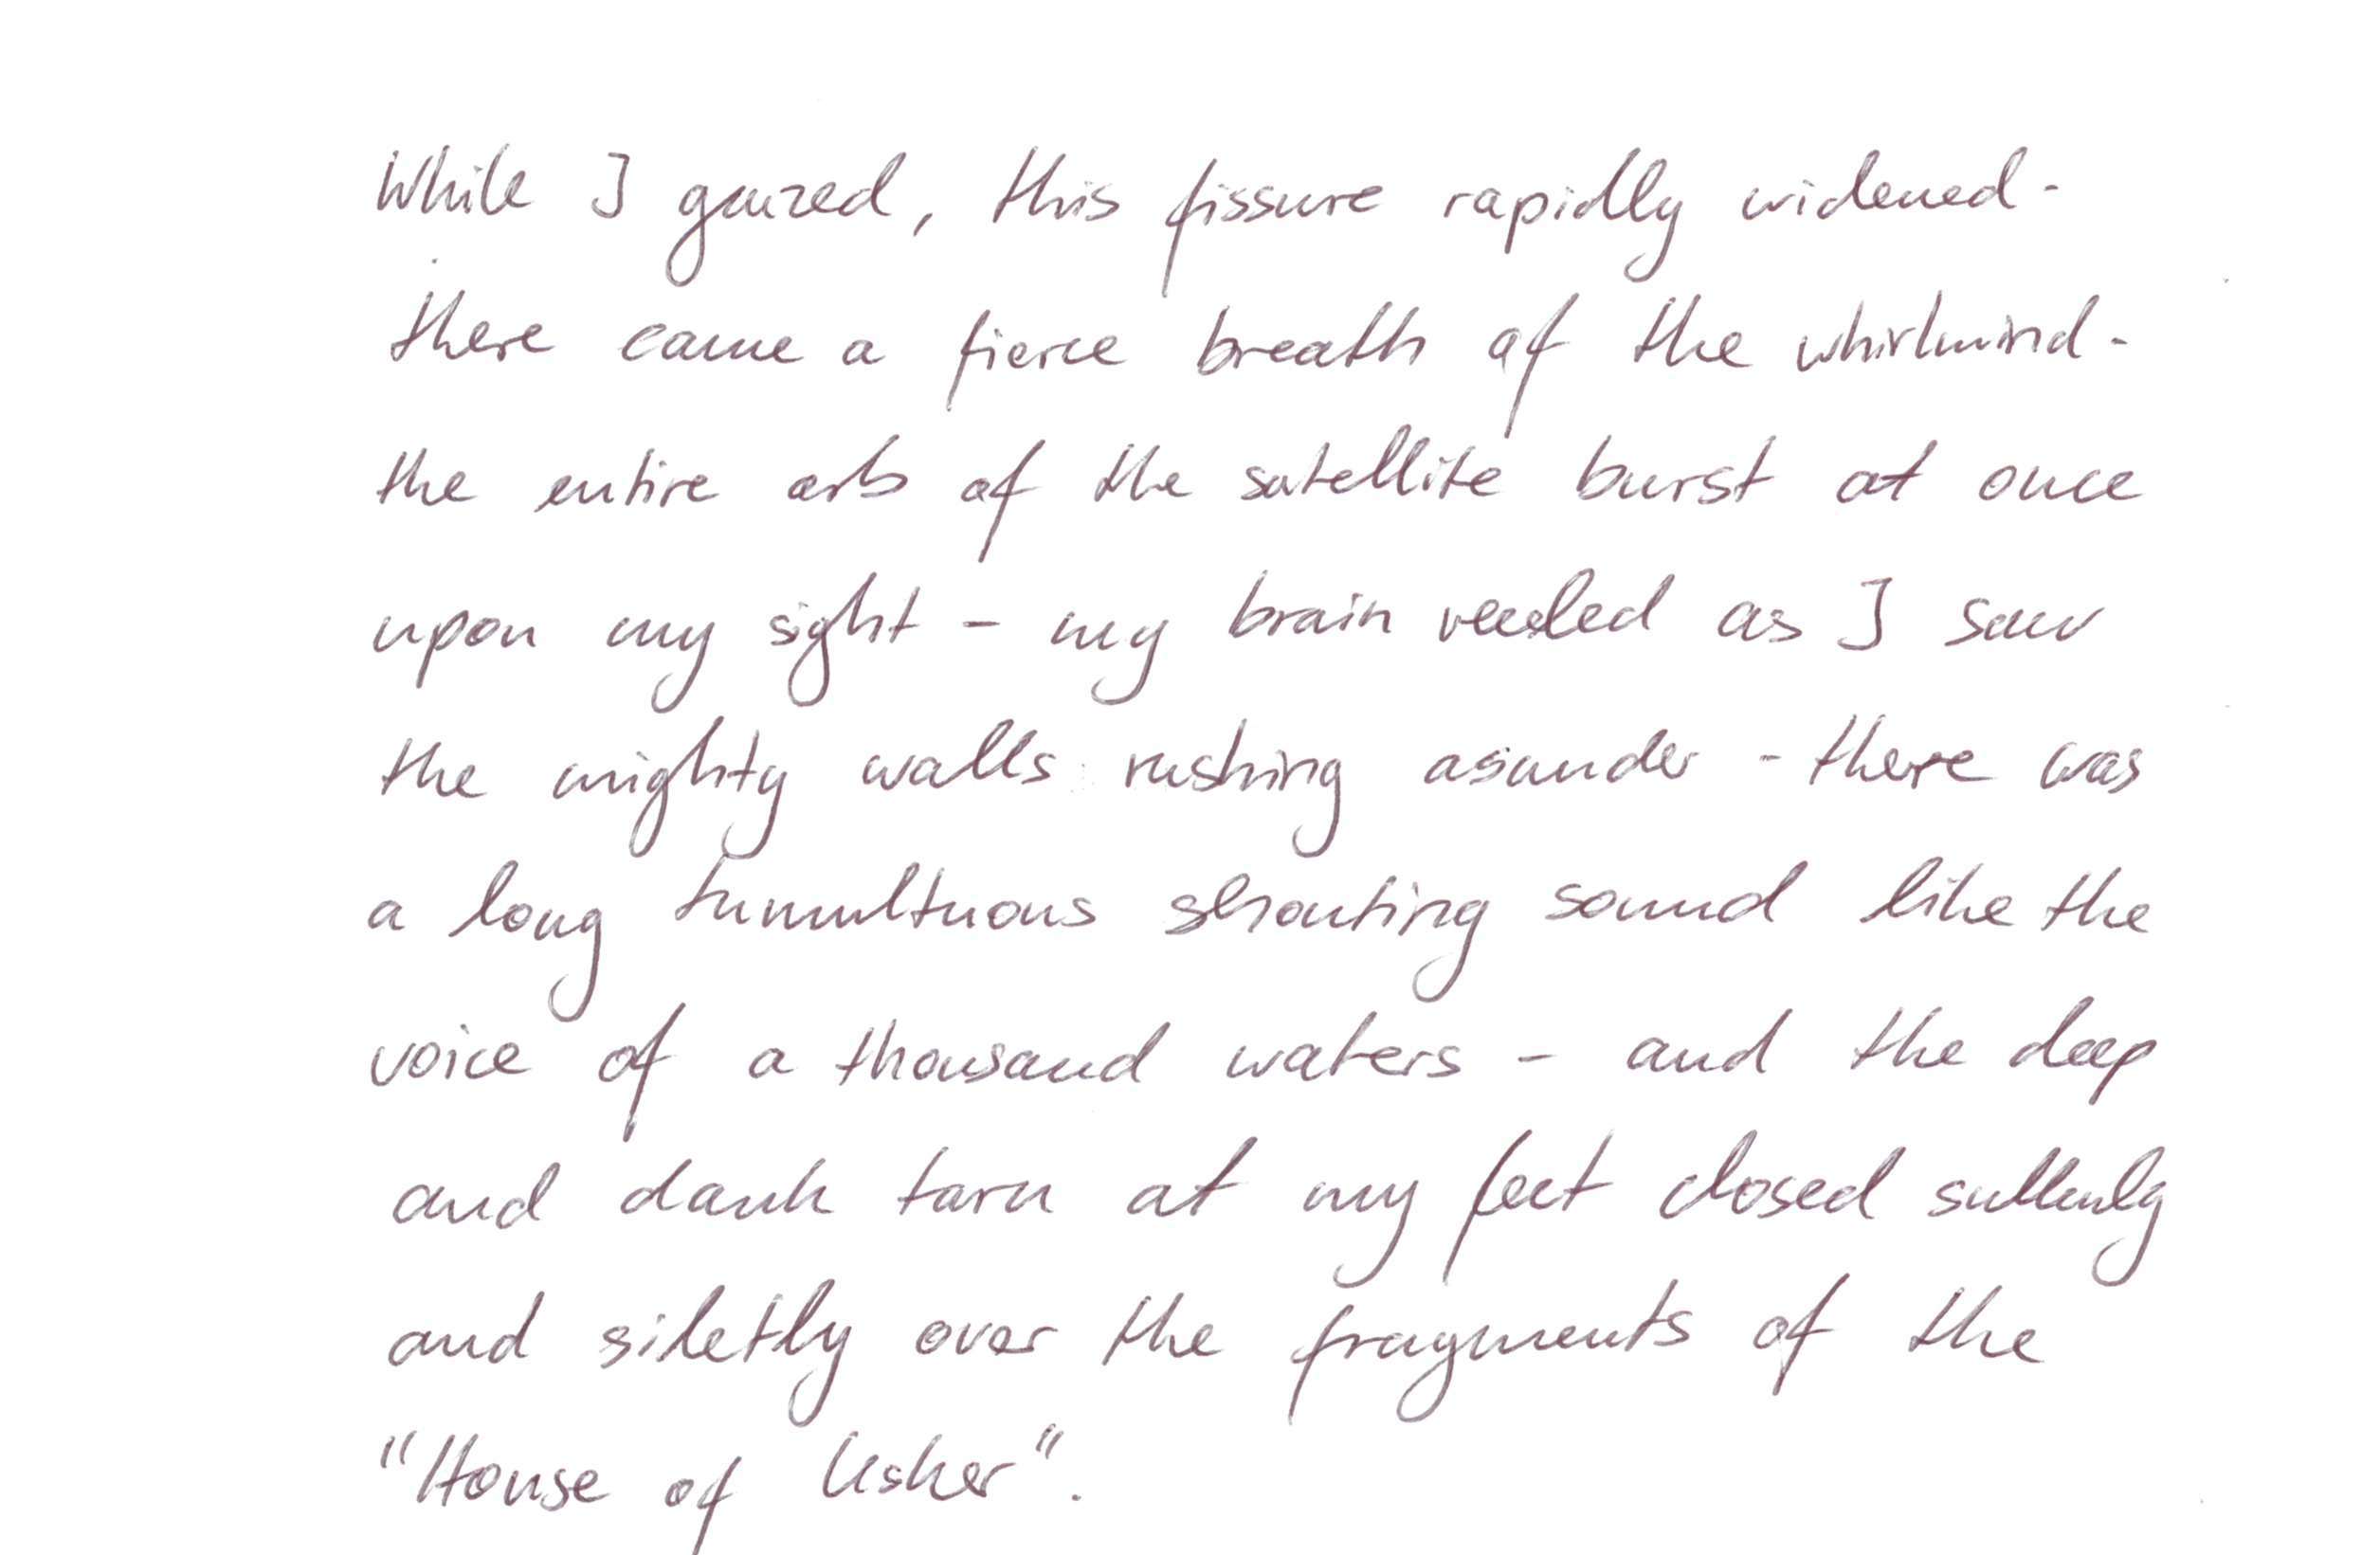 While I gazed, this fissure rapidly widened -
there came a fierce breath of the whirlwind -
the entire orb of the satellite burst at once
upon my sight - my brain reeled as I saw
the mighty walls rushing asunder - there was
a long tumultuous shouting sound like the
voice of a thousand waters - and the deep
and dank tarn at my feet closed sullenly
and siletly over the fragments of the
"House of Usher".